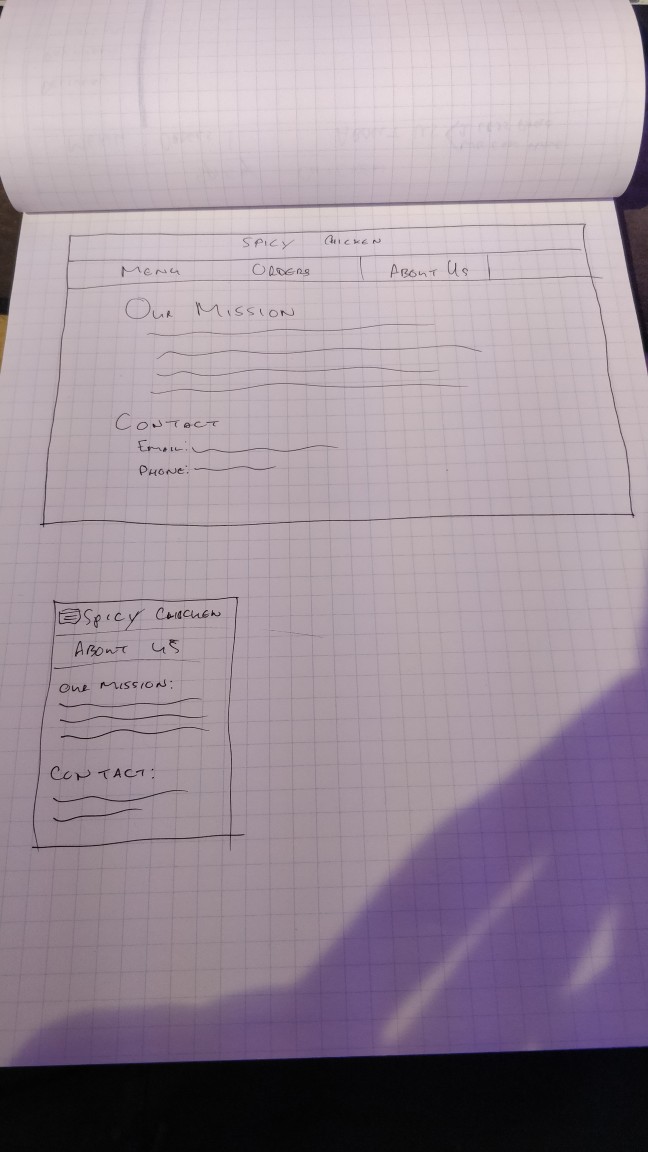 SPICY CHICKEN
MENU ORDERS ABOUT US
OUR MISSION
CONTACT
EMAIL:
PHONE:
SPICY CHICKEN
ABOUT US
OUR MISSION:
CONTACT: